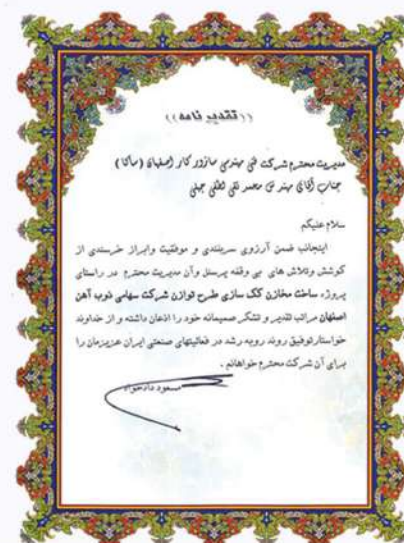 ((تقدیر نامه))
مدیریت محترم شرکت فنی مهندسی سازور کار اصفهان (ساکا)
جناب آقای مهندس محمد تقی لطفی جبلی
سلام علیکم
اینجانب ضمن آرزوی سربلندی و موفقیت وابراز خرسندی از
کوشش وتلاش های بی وقفه پرسنل وآن مدیریت محترم در راستای
پروژه ساخت مخازن کک سازی طرح توازن شرکت سهامی ذوب آهن
اصفهان مراتب تقدیر و تشکر صمیمانه خود را اذعان داشته و از خداوند
خواستارتوفیق روند روبه رشد در فعالیتهای صنعتی ایران عزیزمان را
برای آن شرکت محترم خواهانم .
مسعود دادخواه